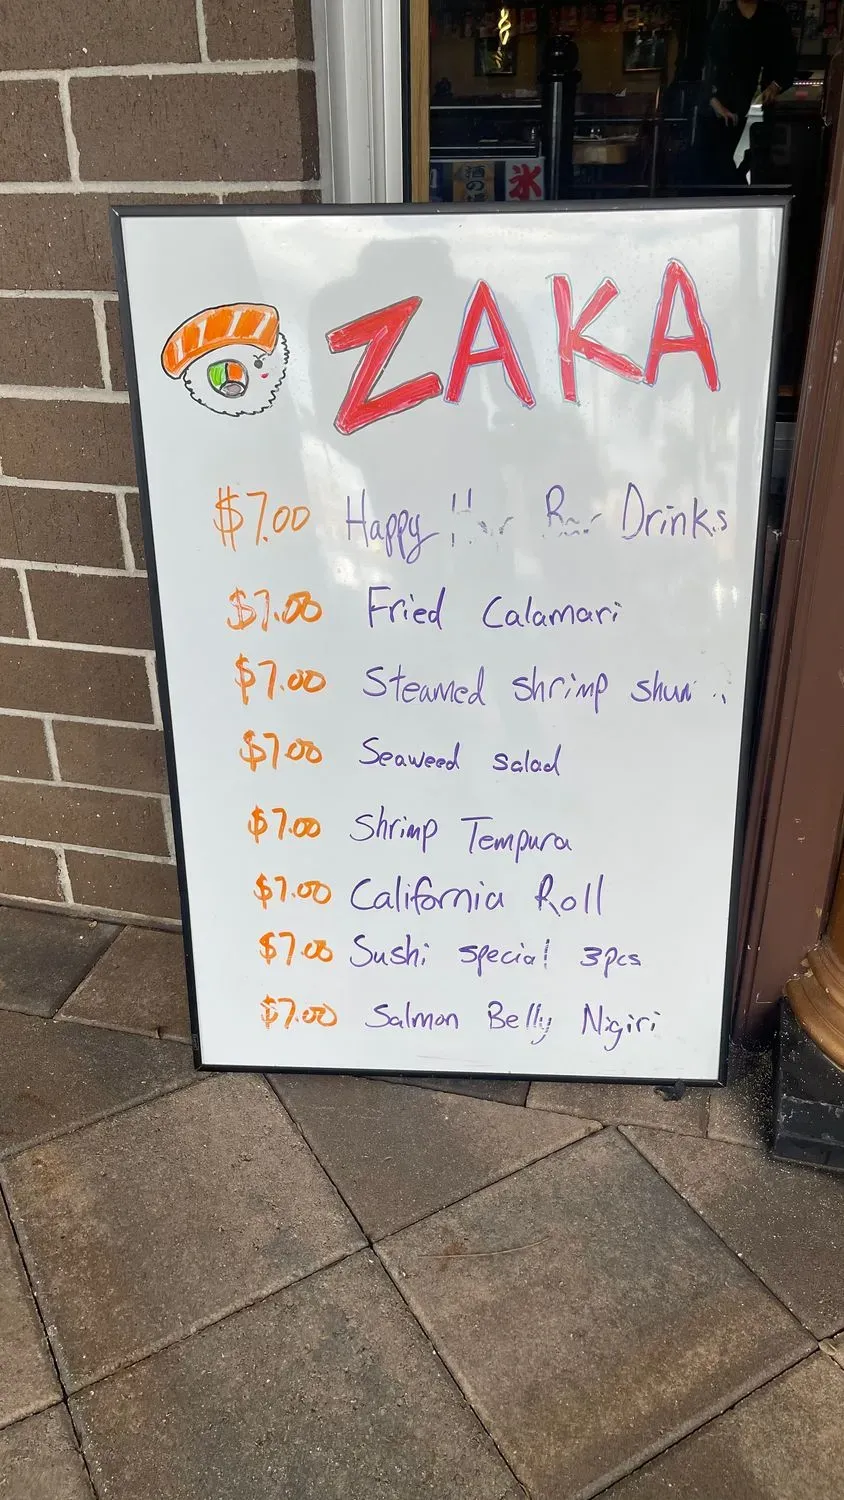 酒の
氷
ZAKA
$7.00 Happy Drinks
$7.00 Fried Calamari
$7.00 Steamed shrimp
$7.00 Seaweed salad
$7.00 Shrimp Tempura
$7.00 California Roll
$7.00 Sushi special 3pcs
$7.00 Salmon Belly Nigiri